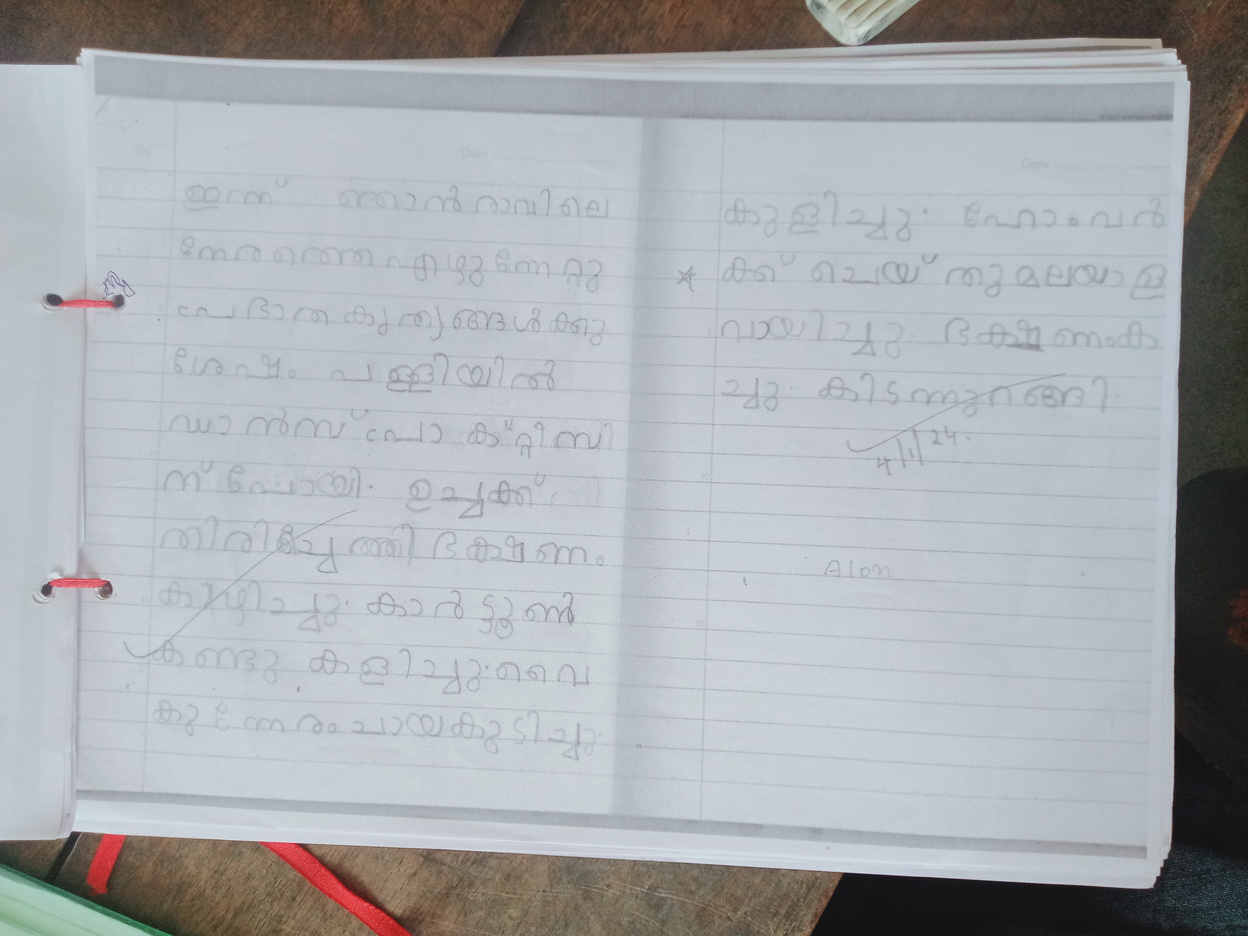 ഇന്ന് ഞാൻ രാവിലെ
നേരത്തെ എഴുന്നേറ്റു
പ്രഭാത കൃത്യങ്ങൾക്കു
ശേഷം പള്ളിയിൽ
ഡാൻസ് പ്രാക്റ്റീസി
ന് പോയി. ഉച്ചക്ക്
തിരിച്ചെത്തി ഭക്ഷണം
കഴിച്ചു. കാർട്ടൂൺ
കണ്ടു കളിച്ചു. വൈ
കുന്നേരം ചായകുടിച്ചു
കുളിച്ചു. ഹോംവർ
ക്ക് ചെയ്തു മലയാള
വായിച്ചു. ഭക്ഷണംക
ച്ചു. കിടന്നുറങ്ങി.
4/1/24.
Alon
Date :
Date :